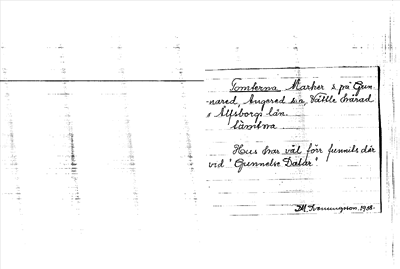 Tomterna Marker s. på Gun-
nared, Angered s:n, Vättle härad
Älfsborgs län.
Hus har väl förr funnits där
vid "Gunnelse Dalar"